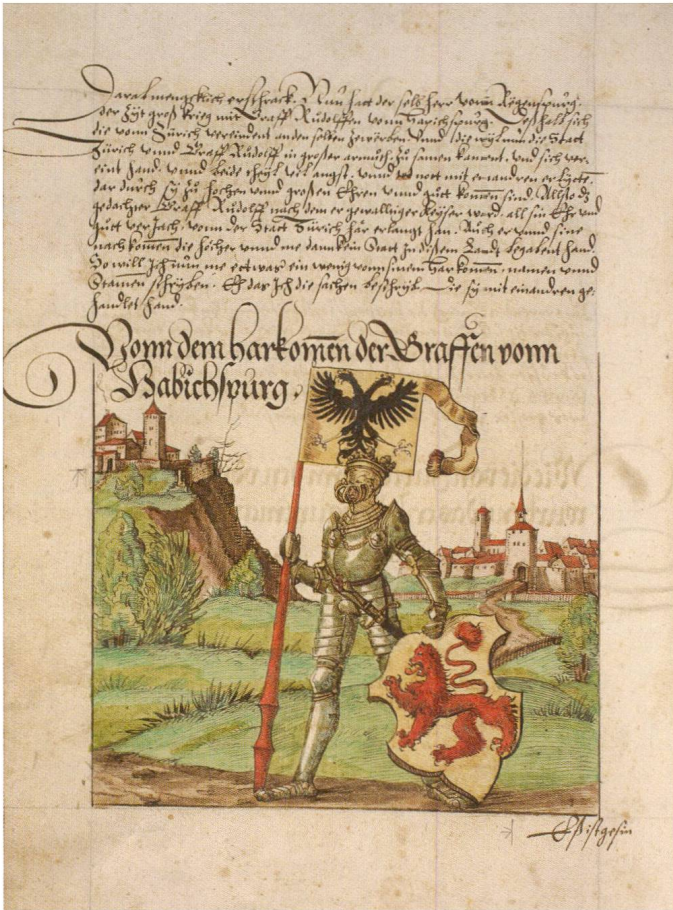 Darab mengcklich erschrack. Nun hatt der selb herr vonn Regenspurg.
der Zyt groß krieg mitt Graff Rudolffen vonn Habichspurg. Deßhalb sich
die vonn Zürich vereindent an den selben zewerben. Unnd die wyl nun die Statt
Zürich unnd Graff Rudolff in großer armuth zu samen kament. und sich ver„
eint hand. unnd beide theyl vil angst. unnd nott mit ein andren erlytten.
dar durch sy zu hochen unnd großen Ehren unnd gutt komen sind. Allso dz
gedachter Graff Rudolff nach dem er gewalltiger Keyser ward. all sin Ehr und
gutt verjach. vonn der Statt Zürich här erlangt han. Auch er unnd sine
nachkomen die selben unnd me dann kein Statt zu dißem Landt begabent hand.
So will Ich nun me ettwas ein wenig vonn sinem harkomen. namen unnd
Stamen schryben. Eh das Ich die sachen beschryb. Die sy mit ein andren ge„
handlet hand.
Vonn dem harkomen der Graffen vonn
Habichspurg.
Es ist gesin